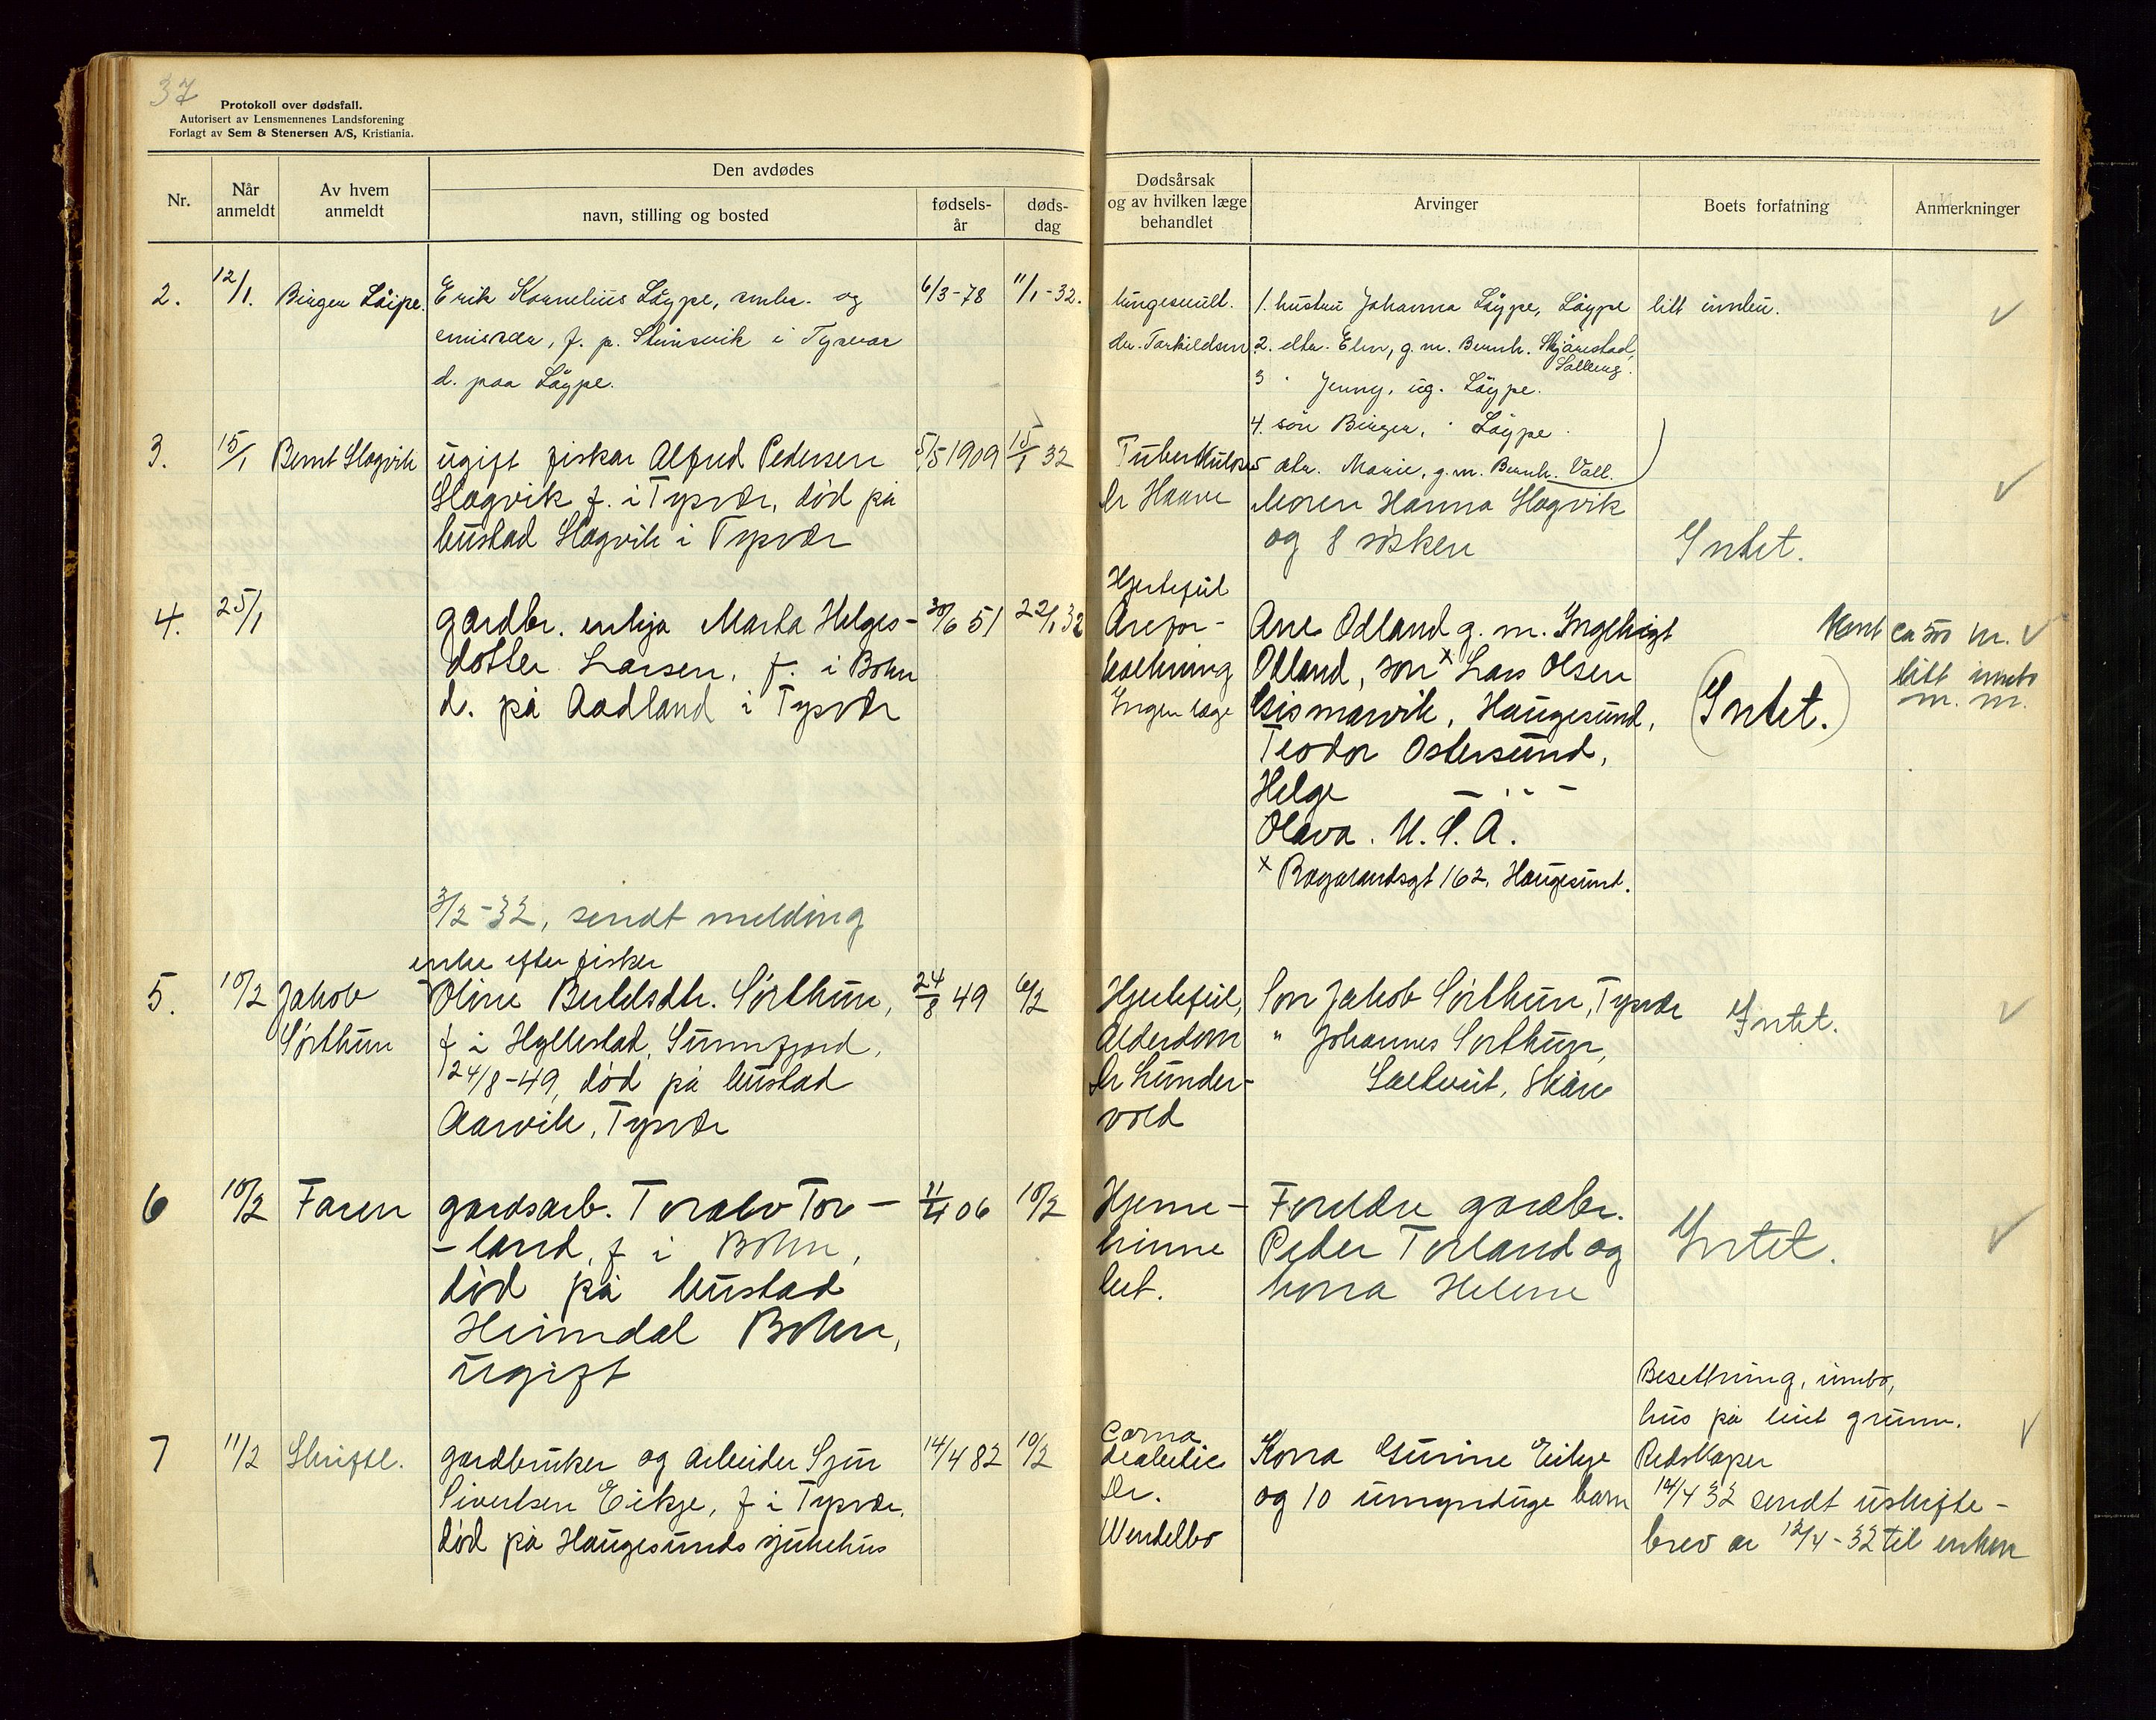 37
Protokoll over dødsfall.
Autorisert av Lensmennenes Landsforening
Forlagt av Sem & Stenersen A/S, Kristiania.
Nr.
Når anmeldt
Av hvem anmeldt
Den avdødes
navn, stilling og bosted
fødsels-år
døds-dag
Dødsårsak og av hvilken læge behandlet
Arvinger
Boets forfatning
Anmerkninger
2. 12/1. Birger Løipe. Erik Kornelius Løype, smbr. og 6/3-78 11/1-32.
emissær, f. p. Steinsvik i Tysvær
d. paa Løype.
lungesvulst.
dr. Torkildsen
1. hustru Johanna Løype, Løype
2. dtr. Elen, g. m. Bernh.
3 " Jenny, ug. Løype.
4. søn Birger, " Løype.
5 dtr. Marie, g. m. Bernh. Vall.
litt innbu.
3. 15/1 Bernt Slogvik ugift fiskar Alfred Pedersen 5/5 1909 15/1 32
Slogvik f. i Tysvær, død på
bustad Slogvik i Tysvær
Tuberkulose
Dr Haave
Moren Hanna Slogvik
og 8 søsken
Intet.
4. 25/1 gardbr. enkja Marta Helges- 30/6 51 22/1 32
dotter Larsen, f. i Bokn
d. på Aadland i Tysvær
Hjertefeil
Årefor-
kalkning
Ingen læge
Ane Odland g. m. Ingebrigt
Odland, son x Lars Olsen
Gismarvik, Haugesund,
Teodor Ostersund,
Helge — " —
Olava. U. S. A.
x Rogalandsgt 162, Haugesund.
(Intet.)
Kont ca 500 kr.
litt innbo
m. m.
3/2-32, sendt melding
enke efter fisker
5. 10/2 Jakob Oline Bertelsdtr. Sørthun, 24/8 49 6/2
Sørthun f i Hyllestad, Sunnfjord,
24/8-49, død på bustad
Aarvik, Tysvær
Hjertefeil,
Alderdom
Dr Lunder-
vold
Son Jakob Sørthun, Tysvær
" Johannes Sørthun,
Saltveit, Skåre
Intet.
6 10/2 Faren gardsarb. Toralv Tor- 11/4 06 10/2
-land, f i Bokn,
død på bustad
Heimdal Bokn,
ugift
Hjerne-
hinne
bet.
Foreldre gardbr.
Peder Torland og
kona Helene
Intet.
7 11/2 Skriftl. gardbruker og arbeider Sjur 14/4 82 10/2
Sivertsen Eikje, f i Tysvær,
død på Haugesunds sjukehus
Coma
diabetic
Dr.
Wendelbo
Kona Gurine Eikje
og 10 umyndige barn
Besettning, innbo,
hus på leiet grunn.
Redskaper
12/4 32 sendt uskifte-
brev av 12/4-32 til enken